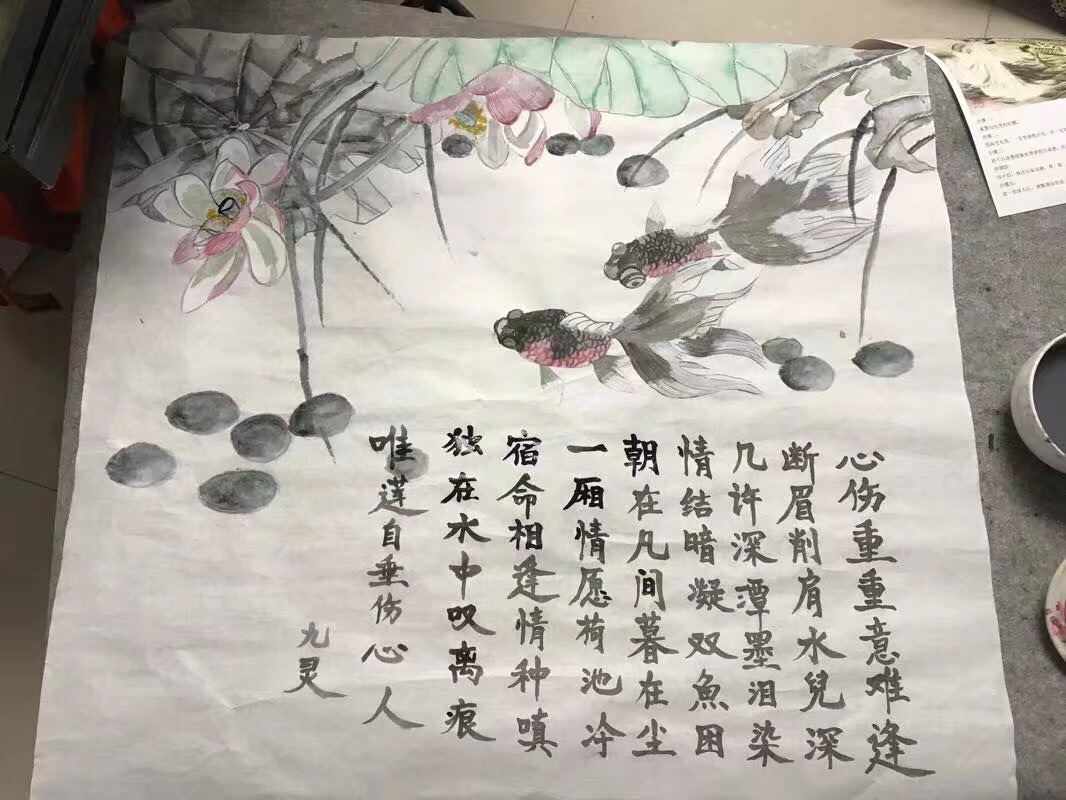 心伤重重意难逢
断眉削肩水兒深
几许深潭墨泪染
情结暗凝双魚困
朝在凡间暮在尘
一厢情愿荷池冷
宿命相逢情种嗔
独在水中叹离痕
唯莲自垂伤心人
九灵